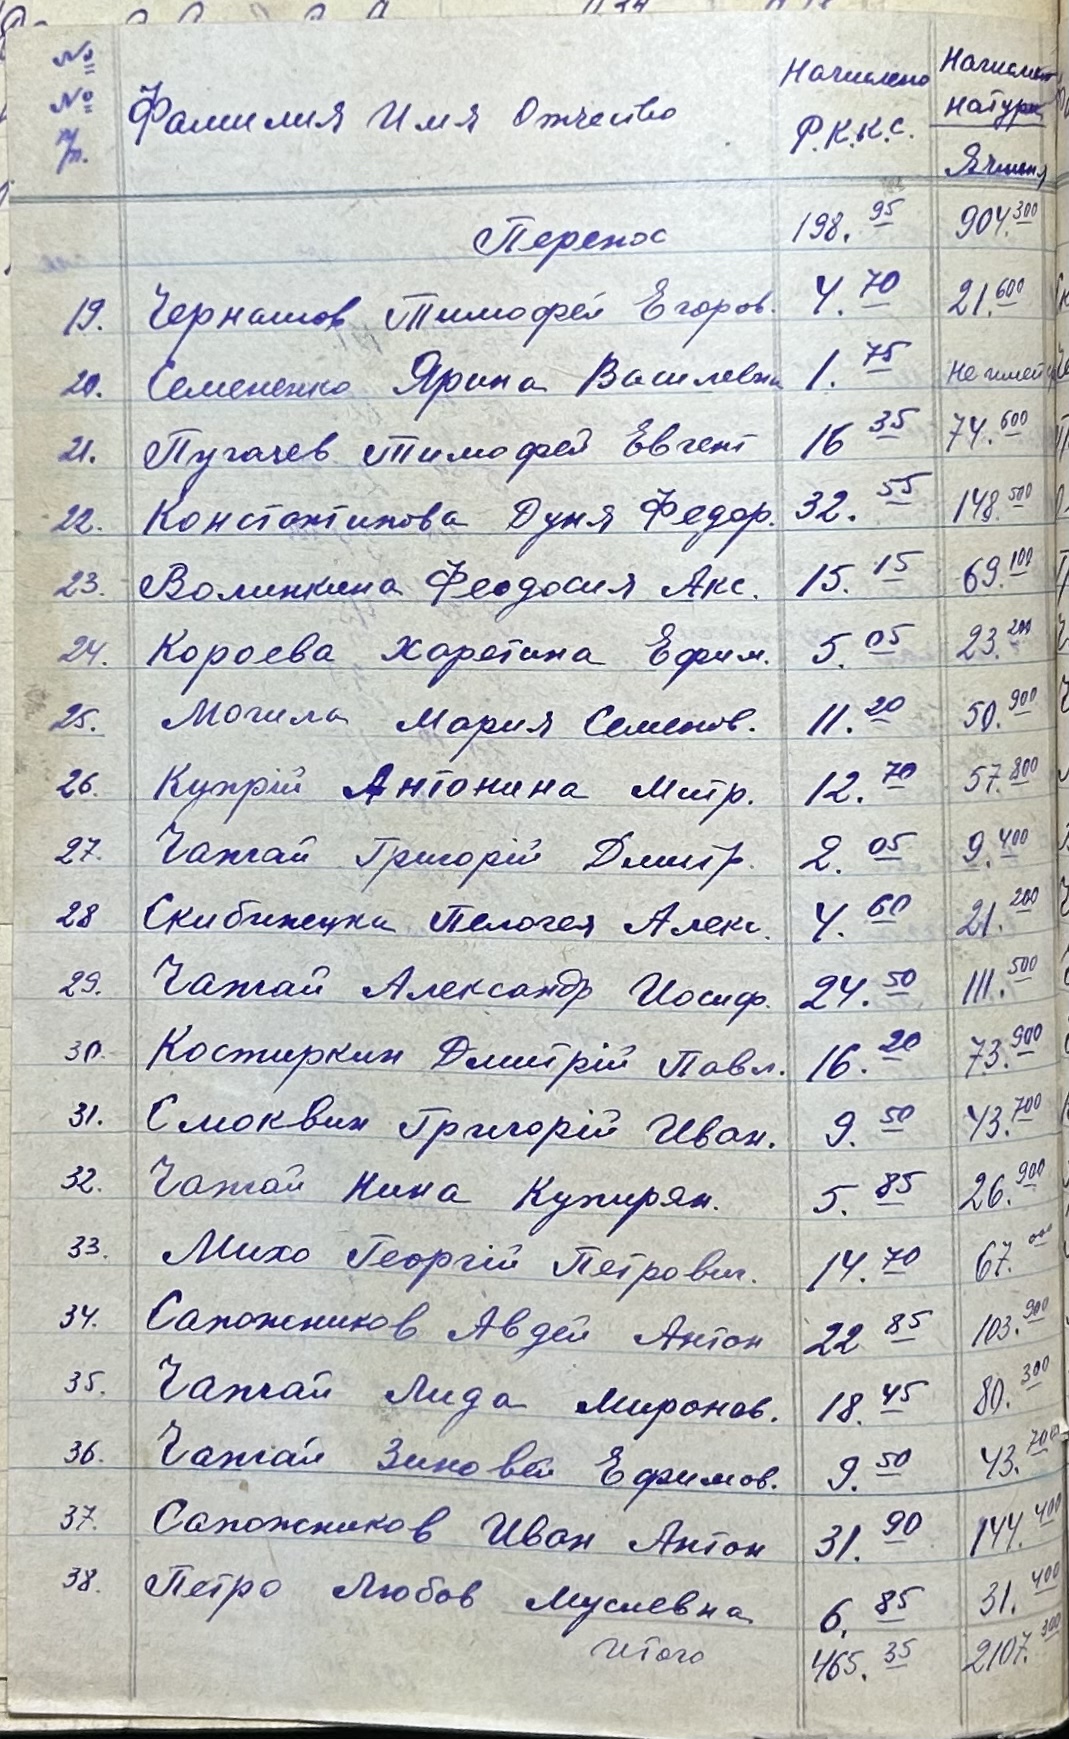 № № п/п. Фамилия Имя Отчество Начислено Р.К.К.С. Начислен натурой Ячменя
Перенос 198.95 904.300
19. Чернашов Тимофей Егоров. 4.70 21.600
20. Семененко Ярина Василевна 1.75 не имеется
21. Пугачев Тимофей Евгент 16 35 74.600
22. Константинова Дуня Федор. 32.55 148.500
23. Волинкина Феодосия Акс. 15.15 69.100
24. Короева Харетина Ефим. 5.05 23.200
25. Могила Мария Семенов. 11.20 50.900
26. Купрій Антонина Митр. 12.70 57.800
27. Чапчай Григорій Дмитр. 2.05 9.400
28 Скибинецка Пелагея Алекс. 4.60 21.200
29. Чапчай Александр Иосиф. 24.50 111.500
30. Костиркин Дмитрій Павл. 16.20 73.900
31. Смоквин Григорій Иван. 9.50 43.700
32. Чапчай Нина Куприян. 5.85 26.900
33. Михо Георгій Петрович. 14.70 67.000
34. Сапожников Авдей Антон 22 85 103.900
35. Чапчай Лида Миронов. 18.45 80.300
36. Чапчай Зиновей Ефимов. 9.50 43.700
37. Сапожников Иван Антон 31.90 144.400
38. Петро Любов Мусиевна 6.85 31.400
Итого 465.35 2107.300